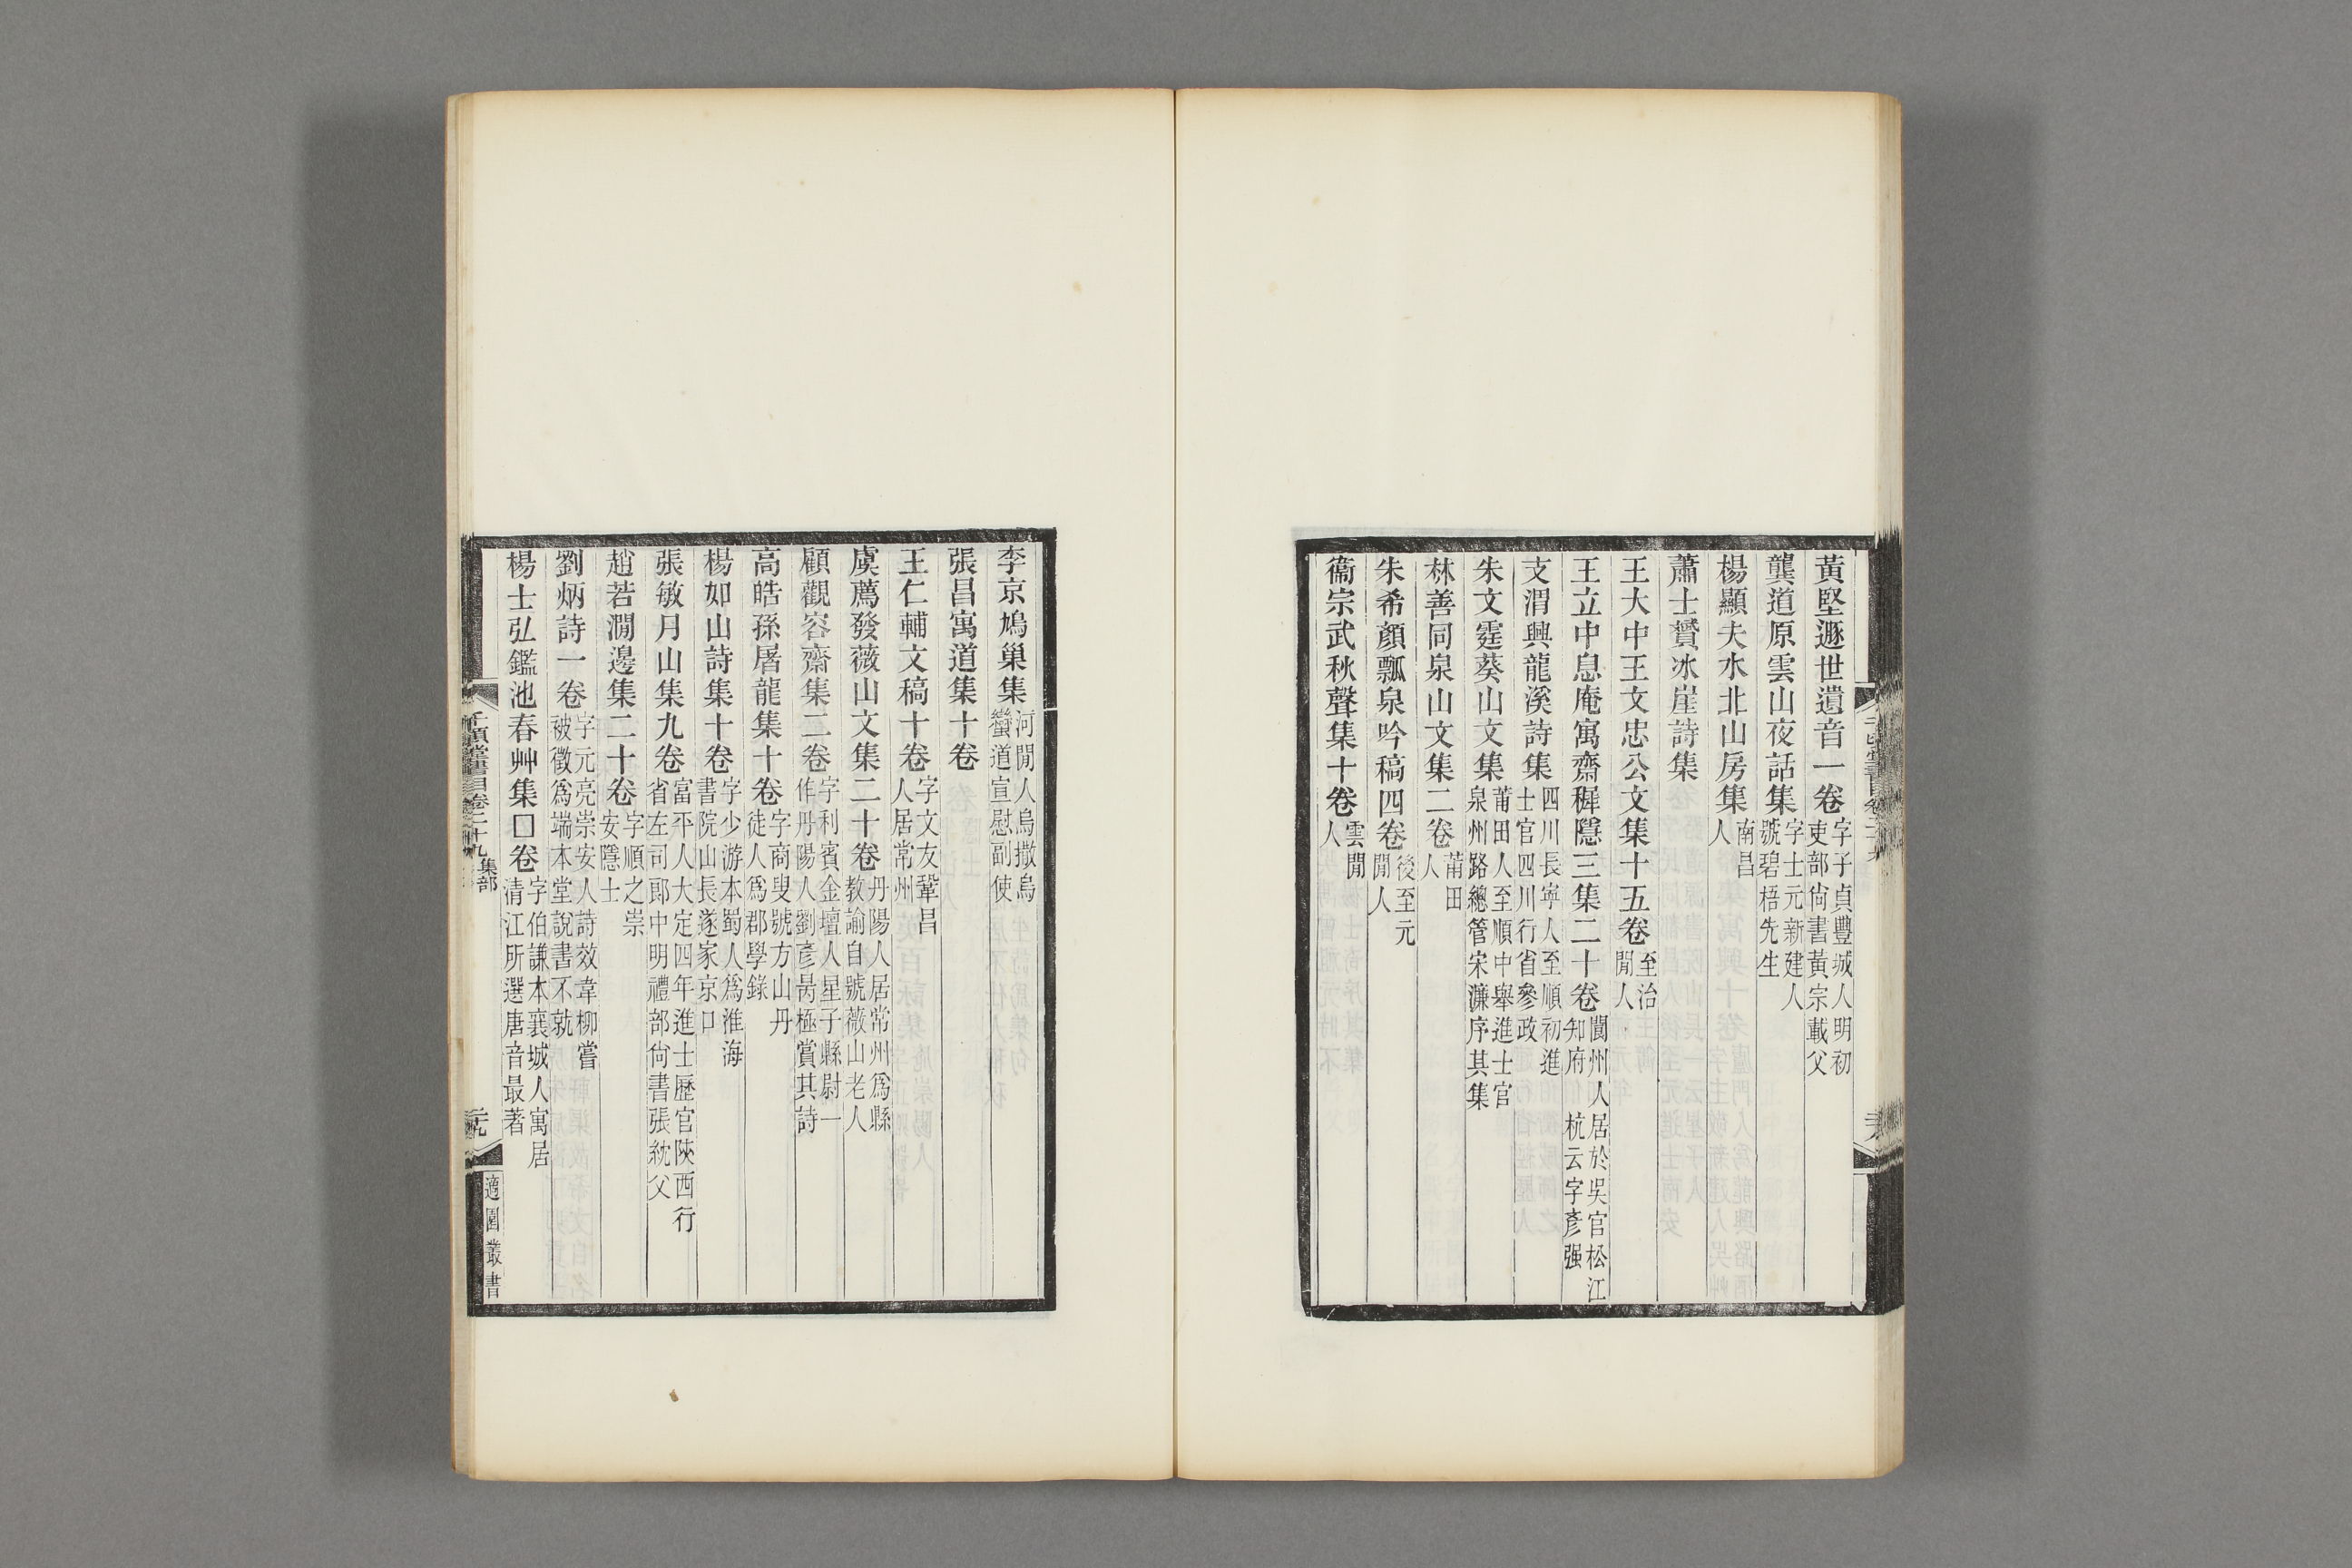 黃堅遯世遺音一卷字子貞豐城人明初吏部尙書黃宗載父
龔道原雲山夜話集字士元新建人號碧梧先生
楊顯夫水北山房集南昌人
蕭士贇冰崖詩集
王大中王文忠公文集十五卷至治閒人
王立中息庵寓齋穉隱三集二十卷閬州人居於吳官松江知府 杭云字彥强
支渭興龍溪詩集四川長寧人至順初進士官四川行省參政
朱文霆葵山文集莆田人至順中舉進士官泉州路總管宋濂序其集
林善同泉山文集二卷莆田人
朱希顏瓢泉吟稿四卷後至元閒人
衞宗武秋聲集十卷雲閒人
李京鳩巢集河閒人烏撒烏蠻道宣慰副使
張昌寓道集十卷
王仁輔文稿十卷字文友鞏昌人居常州
虞薦發薇山文集二十卷丹陽人居常州爲縣教諭自號薇山老人
顧觀容齋集二卷字利賓金壇人星子縣尉一作丹陽人劉彥昺極賞其詩
高晧孫屠龍集十卷字商叟號方山丹徒人爲郡學錄
楊如山詩集十卷字少游本蜀人爲淮海書院山長遂家京口
張敏月山集九卷富平人大定四年進士歷官陝西行省左司郎中明禮部尙書張紞父
趙若㵎邊集二十卷字順之崇安隱士
劉炳詩一卷字元亮崇安人詩效韋柳嘗被徵爲端本堂說書不就
楊士弘鑑池春艸集□卷字伯謙本襄城人寓居清江所選唐音最著
千頃堂書目卷二十九 集部
二十九
適園叢書